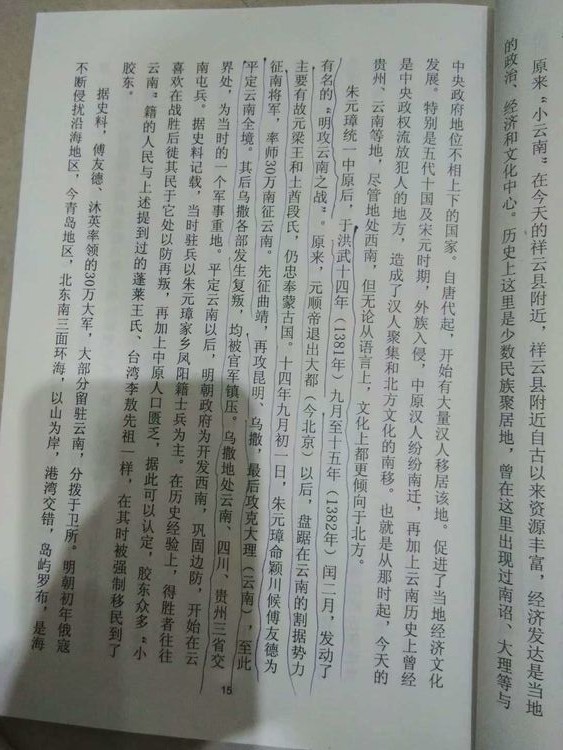 原来“小云南”在今天的祥云县附近，祥云县附近自古以来资源丰富，经济发达是当地
的政治、经济和文化中心。历史上这里是少数民族聚居地，曾在这里出现过南诏、大理等与
中央政府地位不相上下的国家。自唐代起，开始有大量汉人移居该地。促进了当地经济文化
发展。特别是五代十国及宋元时期，外族入侵，中原汉人纷纷南迁，再加上云南历史上曾经
是中央政权流放犯人的地方，造成了汉人聚集和北方文化的南移。也就是从那时起，今天的
贵州、云南等地，尽管地处西南，但无论从语言上，文化上都更倾向于北方。
朱元璋统一中原后，于洪武十四年（1381年）九月至十五年（1382年）闰二月，发动了
有名的“明攻云南之战”。原来，元顺帝退出大都（今北京）以后，盘踞在云南的割据势力
主要有故元梁王和土酋段氏，仍忠奉蒙古国。十四年九月初一日，朱元璋命颖川候傅友德为
征南将军，率师30万南征云南。先征曲靖，再攻昆明、乌撒，最后攻克大理（云南），至此
平定云南全境。其后乌撒各部发生复叛，均被官军镇压。乌撒地处云南、四川、贵州三省交
界处，为当时的一个军事重地。平定云南以后，明朝政府为开发西南，巩固边防，开始在云
南屯兵。据史料记载，当时驻兵以朱元璋家乡凤阳籍士兵为主。在历史经验上，得胜者往往
喜欢在战胜后徙其民于它处以防再叛，再加上中原人口匮乏，据此可以认定，胶东众多“小
云南”籍的人民与上述提到过的蓬莱王氏、台湾李敖先祖一样，在其时被强制移民到了
胶东。
据史料，傅友德、沐英率领的30万大军，大部分留驻云南，分拨于卫所。明朝初年倭寇
不断侵扰沿海地区，今青岛地区，北东南三面环海，以山为岸，港湾交错，岛屿罗布，是海
15